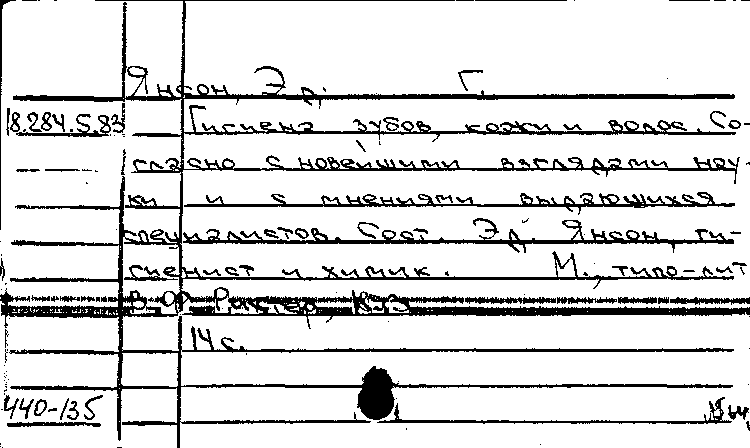 Янсон, Эд. Г.
18.284.5.83 Гигиена зубов, кожи и волос. Со-
гласно с новейшими взглядами нау-
ки и с мнениями выдающихся
специалистов. Сост. Эд. Янсон, ги-
гиенист и химик. М., типо-лит
В. Рихтер,
14 с.
440-135